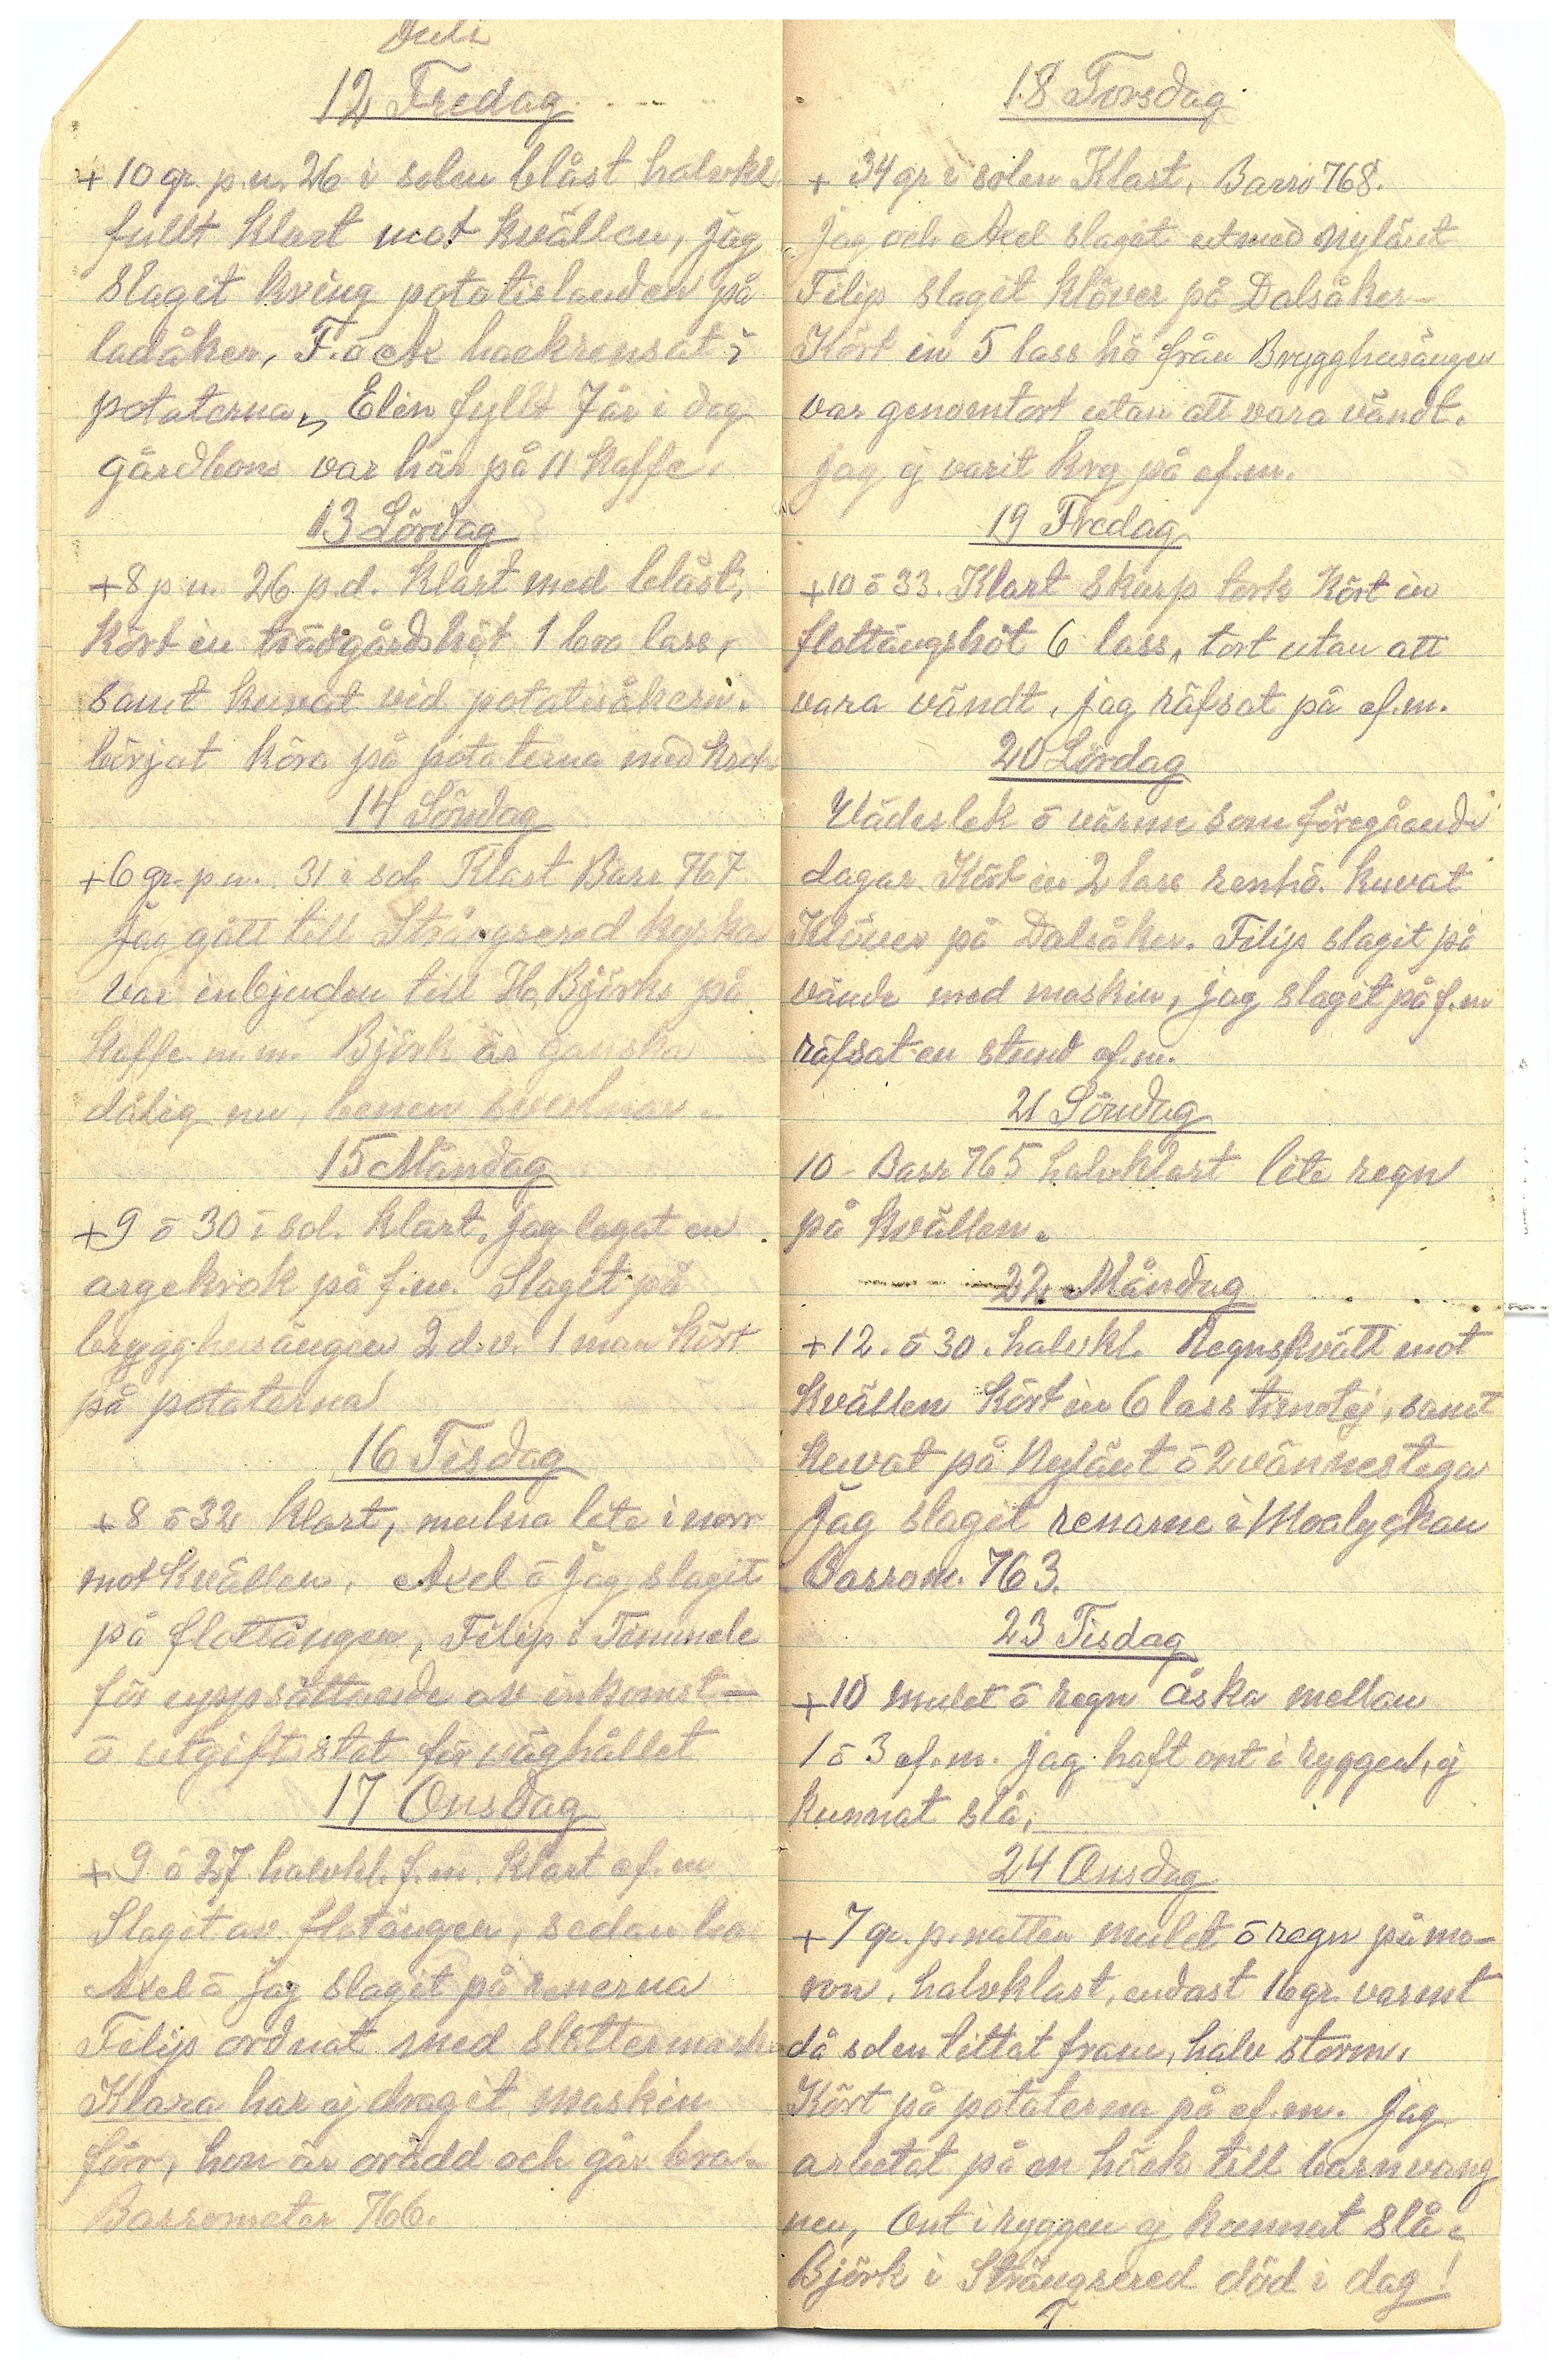 Juli
12 Fredag
+ 10 gr. p.n. 26 i solen blåst halvkl.
fullt klart mot kvällen, jag
slagit kring potatislanden på
ladåker, F. ō Ax hackrensat i
potaterna, Elin fyllt 7 år i dag
gårdbons var här på 11 kaffe.
13 Lördag
+8 p n. 26 p.d. klart med blåst,
kört in trädgårdshöt 1 bra lass,
samt kuvat vid potatisåkern.
börjat köra på potaterna med
14 Söndag
+6 gr. p n. 31 i sol. Klart Barr 767
Jag gått till Strängsered kyrka
var inbjuden till H, Björks på
kaffe m.m. Björk är ganska
dålig nu, benen svullnar.
15 Måndag
+9 ō 30 i sol. klart. jag lagat en
argekrok på f.m. Slagit på
brygghusängen 2 d.v. 1 man kört
på potaterna
16 Tisdag
+8 ō 32 klart, mulna lite i norr
mot kvällen. Axel ō jag slagit
på flottängen, Filip i Timmele
för uppsättande av inkomst-
ō utgiftsstat för väghållet
17 Onsdag
+ 9 ō 27 halvkl. f.m. klart ef.m
Slagit av flotängen, sedan ha
Axel ō jag slagit på renerna
Filip ordnat med slottermask.
Klara har ej dragit maskin
förr, hon är orädd och går bra.
Barrometer 766.
18 Torsdag
+ 34 gr i solen Klart, Barro 768.
Jag och Axel slagit utmed Nylänt
Filip slagit klöver på Dalsåker-
Kört in 5 lass hö från Brygghusängen
var genomtort utan att vara vändt.
jag ej varit kry på ef.m.
19 Fredag
+10 ō 33. Klart skarp tork Kört in
flottängshöt 6 lass, tort utan att
vara vändt, jag räfsat på ef.m.
20 Lördag
Väderlek ō värme som föregående
dagar. Kört in 2 lass renhö. kuvat
Klöver på Dalsåker. Filip slagit på
vände med maskin, jag slagit på f.m
räfsat en stund ef.m.
21 Söndag
10 - Barr 765 halvklart lite regn
på kvällen.
22 Måndag
+12. ō 30. halvkl. Regnskvätt mot
kvällen Kört in 6 lass timotej, samt
kuvat på Nylänt ō 2 vännestegar
Jag slagit renarne i Moalyckan
Barrom. 763.
23 Tisdag
+10 mulet ō regn åska mellan
1 ō 3 ef.m. jag haft ont i ryggen, ej
kunnat slå,
24 Onsdag
+7 gr. p. natten mulet ō regn på mo-
ron, halvklart, endast 16 gr. varmt
då solen tittat fram, halv storm,
Kört på potaterna på ef.m. Jag
arbetat på en häck till barnvang
nen, Ont i ryggen ej kunnat slå.
Björk i Strängsered död i dag!